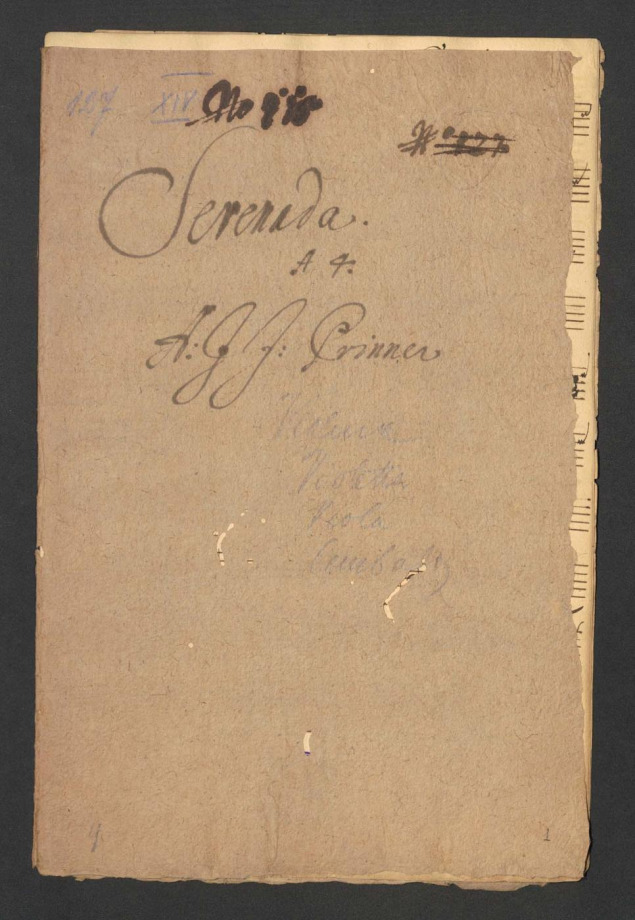 187 XIV No
Serenada.
A 4.
A: J J: Prinner
Violino
Violetta
Viola
Cembalo
4
1